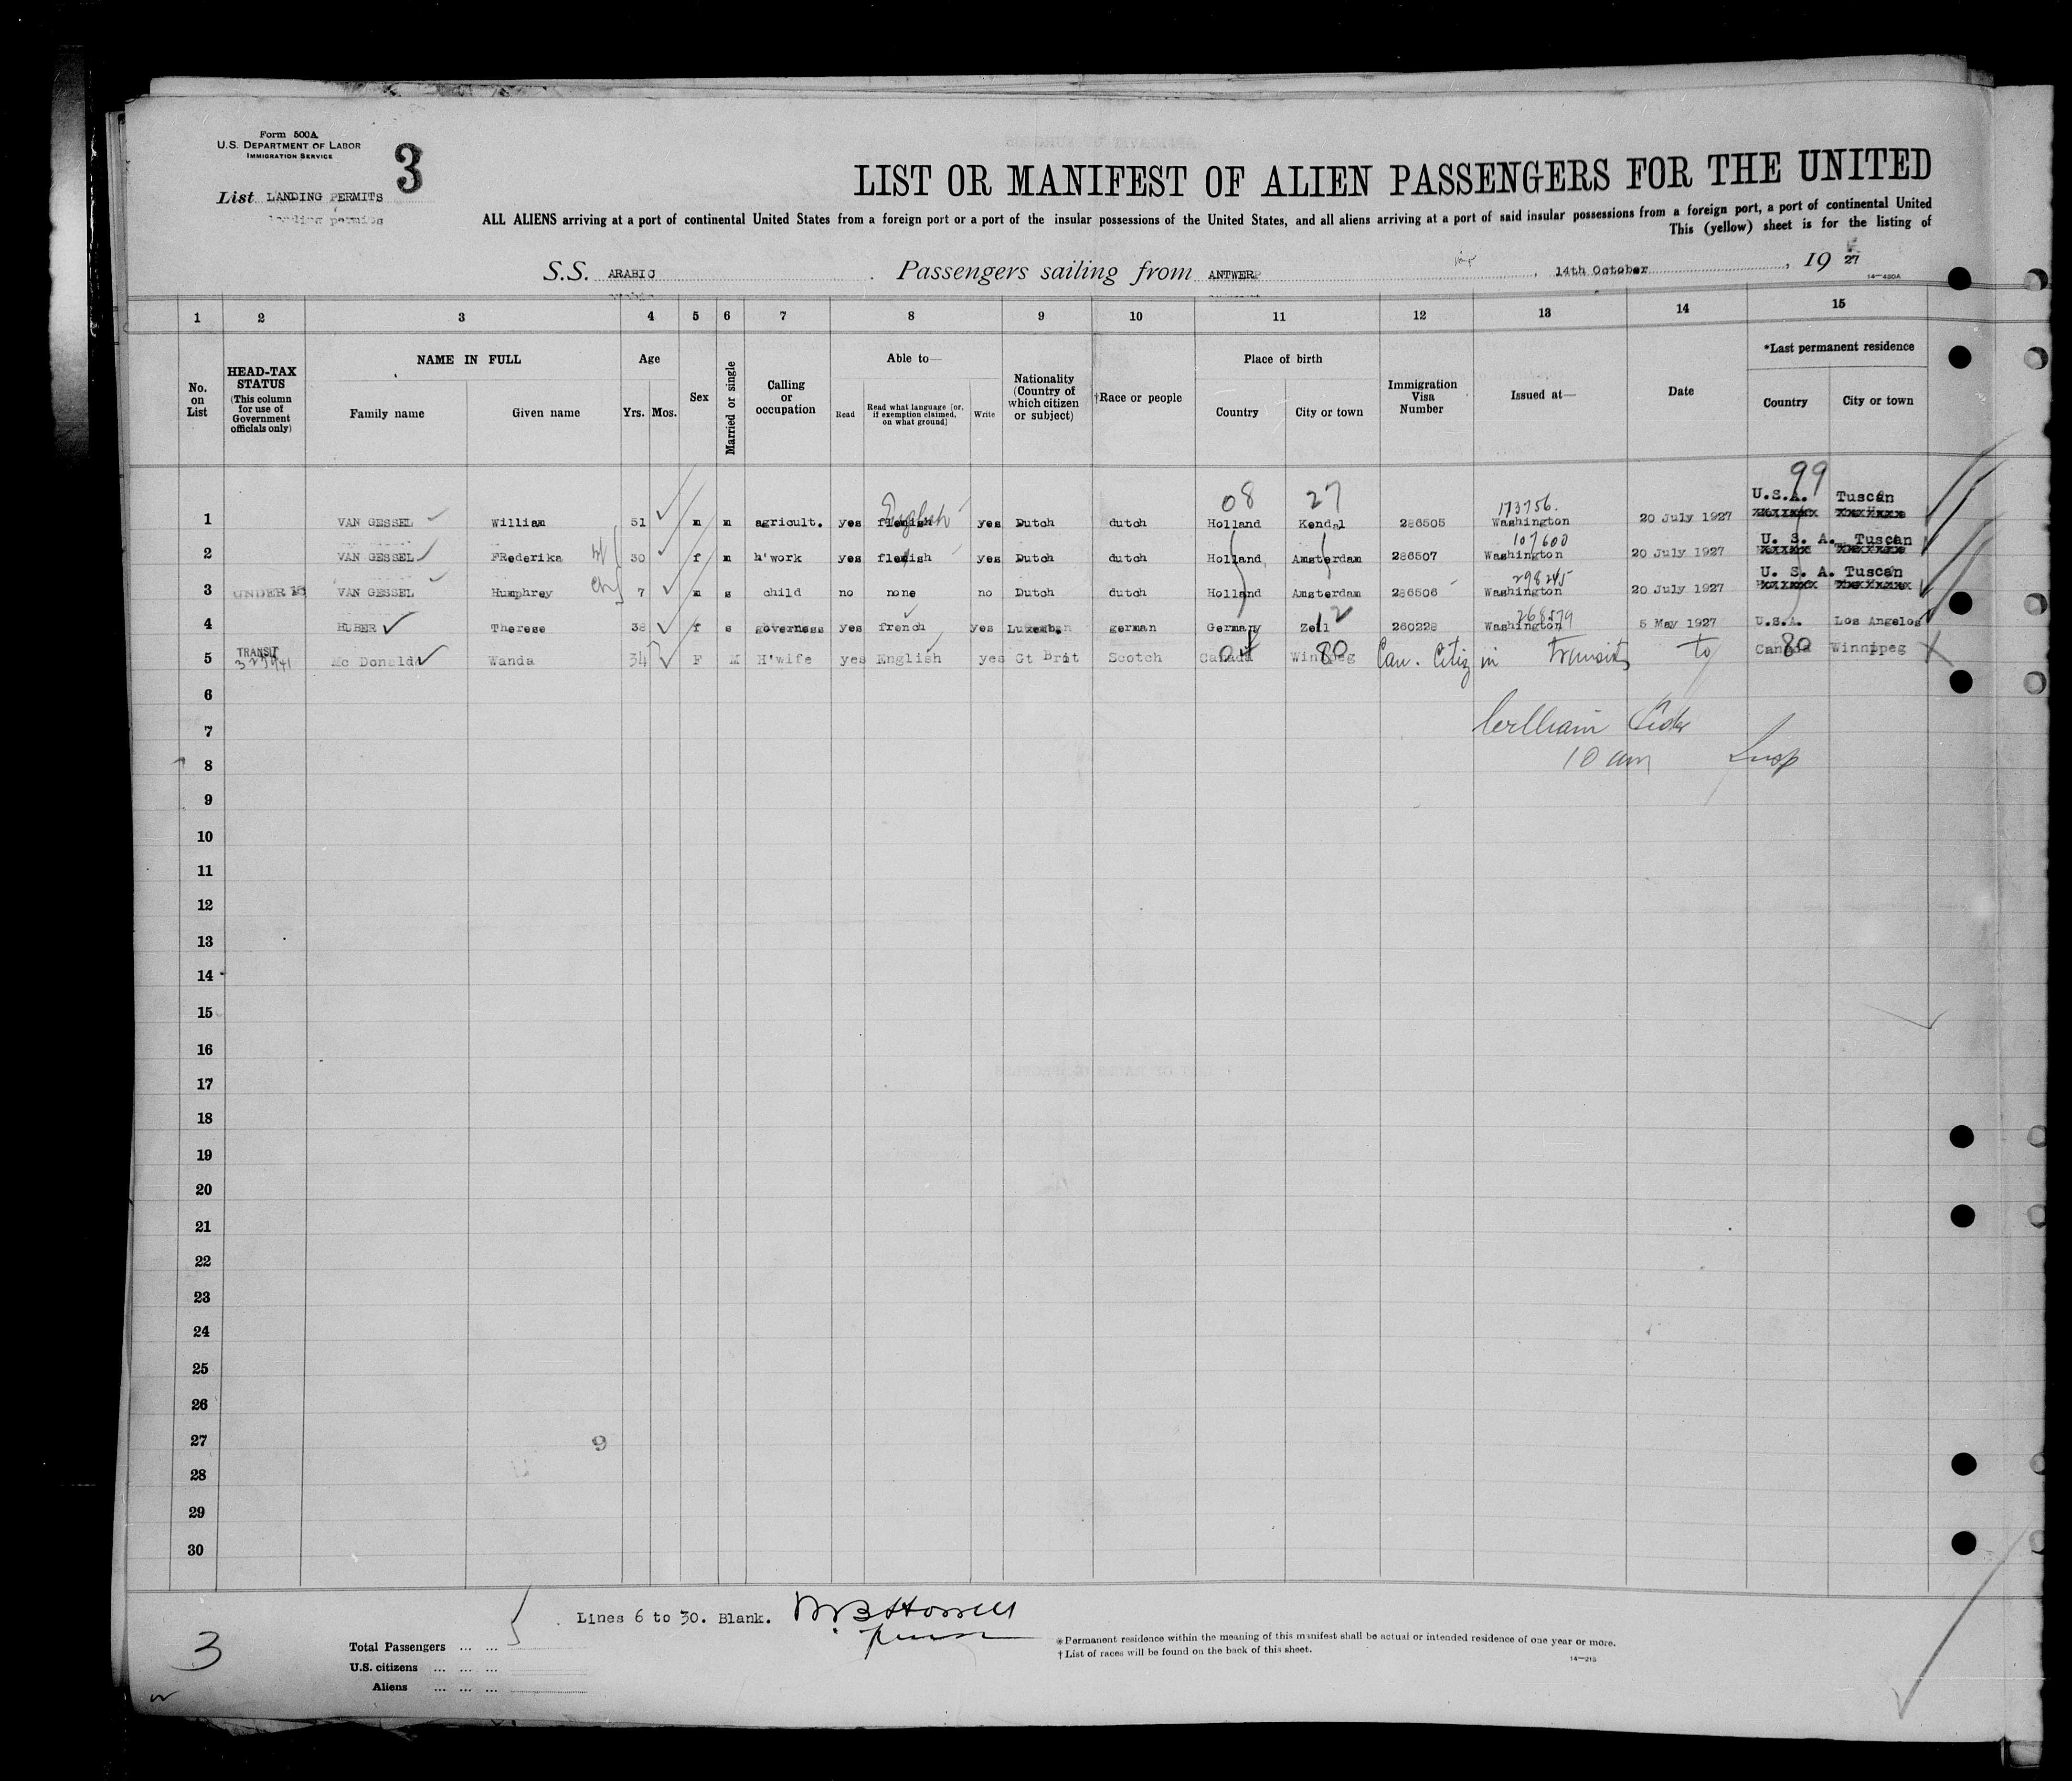 Form 500A
U.S. DEPARTMENT OF LABOR
IMMIGRATION SERVICE
3
List LANDING PERMITS
landing permits
LIST OR MANIFEST OF ALIEN PASSENGERS FOR THE UNITED
ALL ALIENS arriving at a port of continental United States from a foreign port or a port of the insular possessions of the United States, and all aliens arriving at a port of said insular possessions from a foreign port, a port of continental United
This (yellow) sheet is for the listing of
S.S. ARABIC Passengers sailing from ANTWERP, 14th October, 19 27
14—420A
1 2 3 4 5 6 7 8 9 10 11 12 13 14 15
No. on List
HEAD-TAX STATUS (This column for use of Government officials only)
NAME IN FULL Family name Given name
Age Yrs. Mos.
Sex
Married or single
Calling or occupation
Able to— Read Read what language [or, if exemption claimed, on what ground] Write
Nationality (Country of which citizen or subject)
†Race or people
Place of birth Country City or town
Immigration Visa Number
Issued at—
Date
*Last permanent residence Country City or town
08 27 173756. 99
English U.S.A. Tuscan
1 VAN GESSEL William 51 m m agricult. yes flemish yes Dutch dutch Holland Kendal 286505 Washington 20 July 1927
107600 U. S. A. Tuscan
2 VAN GESSEL FRederika wf 30 f m h'work yes flemish yes Dutch dutch Holland Amsterdam 286507 Washington 20 July 1927
298245 U. S. A. Tuscan
3 UNDER 16 VAN GESSEL Humphrey ch 7 m s child no none no Dutch dutch Holland Amsterdam 286506 Washington 20 July 1927
12 268579
4 HUBER Therese 38 f s governess yes french yes Luxemb. german Germany Zell 260228 Washington 5 May 1927 U.S.A. Los Angelos
TRANSIT
5 Mc Donald Wanda 34 F M H'wife yes English yes Gt Brit Scotch Canada Winnipeg 80 Can. Citiz in Transit to Canada 80 Winnipeg
6
7 William
8 10 am Insp
9
10
11
12
13
14
15
16
17
18
19
20
21
22
23
24
25
26
27 9
28
29
30
Lines 6 to 30. Blank.
3
Total Passengers ... ...
U.S. citizens ... ... ...
Aliens ... ... ...
*Permanent residence within the meaning of this manifest shall be actual or intended residence of one year or more.
†List of races will be found on the back of this sheet.
14—213